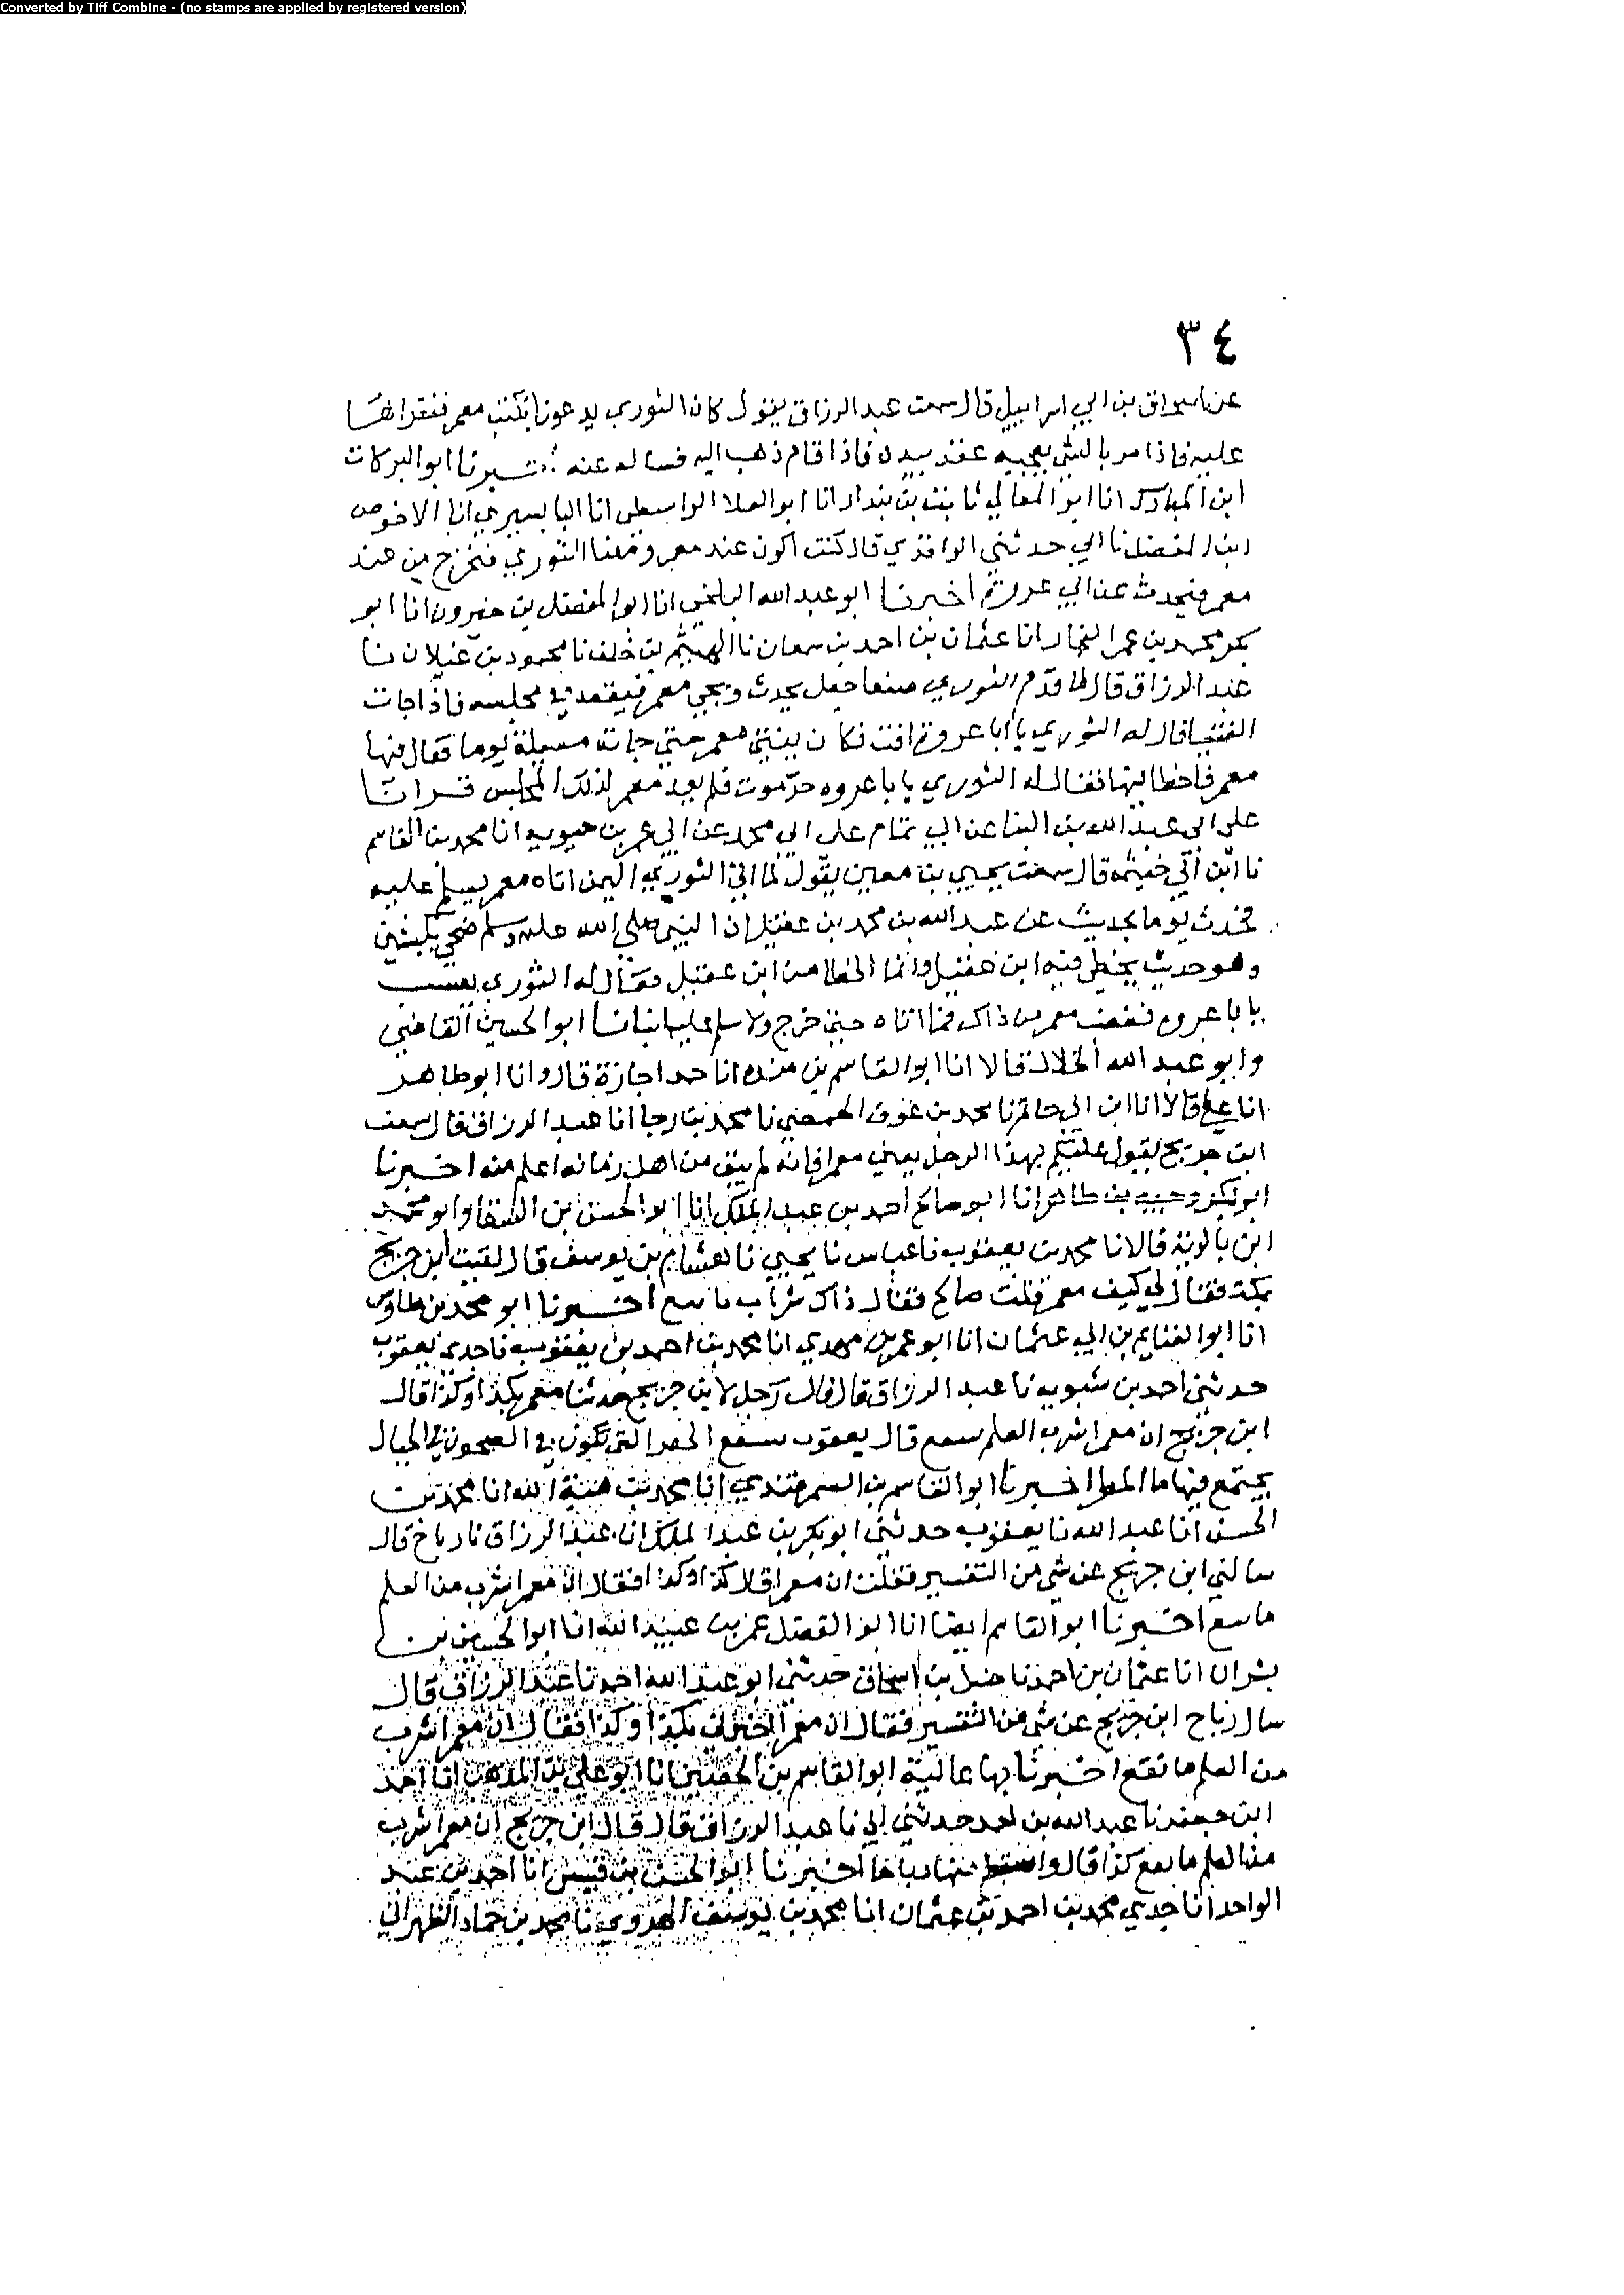 Converted by Tiff Combine - (no stamps are applied by registered version)
٣٤
عن اسحاق بن ابي اسراييل قال سمعت عبد الرزاق يقول كان الثوري يدعونا بكتب معمر فنقراها
عليه فاذا مر بالشي يعجبه عقد بيده فاذا قام ذهب اليه فساله عنه اخبرنا ابو البركات
ابن المبارك انا ابو المعالي ثابت بن بندار انا ابو العلا الواسطي انا البابسيري انا الاحوص
ابن المفضل نا ابي حدثني الواقدي قال كنت اكون عند معمر ومعنا الثوري فنخرج من عند
معمر فيحدث عن ابي عروة اخبرنا ابو عبد الله البلخي انا ابو الفضل بن خيرون انا ابو
بكر محمد بن عمر النجار انا عثمان بن احمد بن سمعان نا الهيثم بن خلف نا محمود بن غيلان نا
عبد الرزاق قال لما قدم الثوري صنعا جعل يحدث ويجي معمر فيقعد في مجلسه فاذا جات
الفتيا قال له الثوري يا أبا عروة افت فكان يفتي معمر حتى جات مسيلة يوما فقال فيها
معمر فاخطا فيها فقال له الثوري يا با عروه فلم يعد معمر لذلك المجلس قرانا
على ابي عبد الله بن البنا عن ابي تمام علي ابي محمد عن ابي عمر بن حيويه انا محمد بن القاسم
نا ابن ابي خيثمه قال سمعت يحيى بن معين يقول لما اتى الثوري اليمن اتاه معمر يسلم عليه
فحدث يوما بحديث عن عبد الله بن محمد بن عقيل ان النبي صلى الله عليه وسلم ضحى بكبشين
وهو حديث يخطي فيه ابن عقيل وانما الخطا من ابن عقيل فقال له الثوري
يا با عروه فغضب معمر من ذاك فما اتاه حتى خرج ولا سلم عليه انبانا ابو الحسين القاضي
وابو عبد الله الخلال قالا انا ابو القاسم بن منده انا حمد اجازة قال وانا ابو طاهر
انا علي قالا انا ابن ابي حاتم نا محمد بن عوف الحمصي نا محمد بن رجا انا عبد الرزاق قال سمعت
ابن جريج يقول عليكم بهذا الرجل يعني معمرا فانه لم يبق من اهل زمانه اعلم منه اخبرنا
ابو بكر وجيه بن طاهر انا ابو صالح احمد بن عبد الملك انا ابو الحسن بن السقا وابو محمد
ابن بالويه قالا نا محمد بن يعقوب نا عباس نا يحيى نا هشام بن يوسف قال لقيت ابن جريج
بمكة فقال لي كيف معمر فقلت صالح فقال ذاك شراب بانقع اخبرنا ابو محمد بن طاوس
انا ابو الغنايم بن ابي عثمان انا ابو عمر بن مهدي انا محمد بن احمد بن يعقوب نا جدي يعقوب
حدثني احمد بن شبويه نا عبد الرزاق قال قال رجل لابن جريج حدثنا معمر بكذا وكذا قال
ابن جريج ان معمرا شرب العلم بنقع قال يعقوب النقع الحفر التي تكون في الصحون في الجبال
يجتمع فيها ما المطر اخبرنا ابو القاسم بن السمرقندي انا محمد بن هبة الله انا محمد بن
الحسن انا عبد الله نا يعقوب حدثني ابو بكر بن عبد الملك انا عبد الرزاق نا رباح قال
سالني ابن جريج عن شي من التفسير فقلت ان معمرا قال كذا وكذا فقال ان معمرا شرب من العلم
ما نقع اخبرنا ابو القاسم ايضا انا ابو الفضل عمر بن عبيد الله انا ابو الحسين بن
بشران انا عثمان بن احمد نا حنبل بن اسحاق حدثني ابو عبد الله احمد نا عبد الرزاق قال
سال رباح ابن جريج عن شي من التفسير فقال ان معمرا اخبرني بكذا وكذا فقال ان معمرا شرب
من العلم ما نقع اخبرنا بها عالية ابو القاسم بن الحصين انا ابو علي بن المذهب انا احمد
ابن جعفر نا عبد الله بن احمد حدثني ابي نا عبد الرزاق قال قال ابن جريج ان معمرا شرب
من العلم ما نقع كذا قال واسقط منها رباحا اخبرنا ابو الحسن بن قبيس انا احمد بن عبد
الواحد انا جدي محمد بن احمد بن عثمان انا محمد بن يوسف الهروي نا محمد بن حماد الظهراني